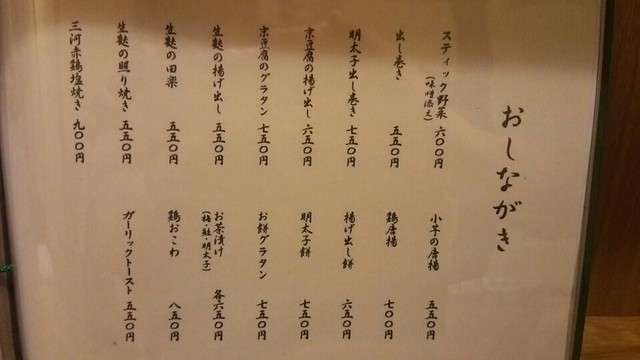 おしながき
スティック野菜(味噌添え) 六〇〇円
出し巻き 五五〇円
明太子出し巻き 七五〇円
京豆腐の揚げ出し 六五〇円
京豆腐のグラタン 七五〇円
生麩の揚げ出し 五五〇円
生麩の田楽 五五〇円
生麩の照り焼き 五五〇円
三河赤鶏塩焼き 九〇〇円
小芋の唐揚 五五〇円
鶏唐揚 七〇〇円
揚げ出し餅 六五〇円
明太子餅 七五〇円
お餅グラタン 七五〇円
お茶漬け(梅・鮭・明太子) 各六五〇円
鶏おこわ 八五〇円
ガーリックトースト 五五〇円